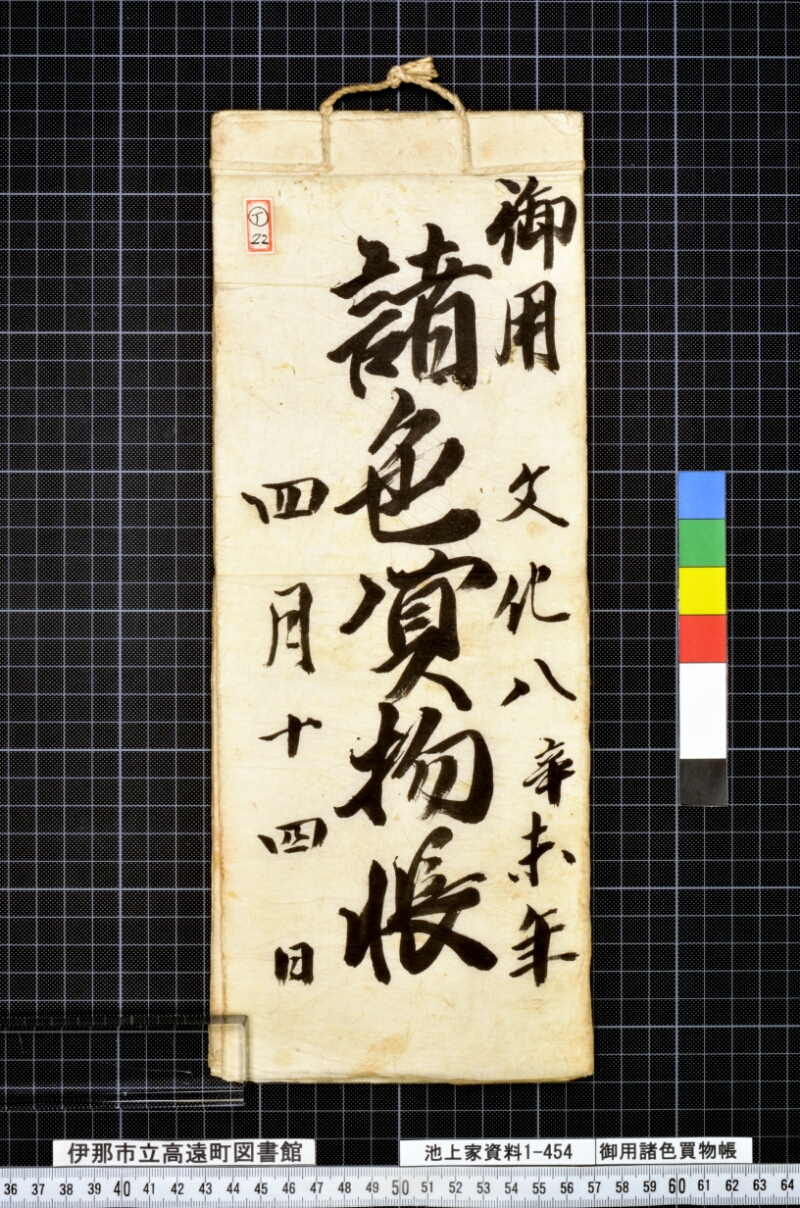 御用
文化八辛未年
諸色買物帳
四月十四日
丁
22
伊那市立高遠町図書館
池上家資料1-454
御用諸色買物帳
36 37 38 39 40 41 42 43 44 45 46 47 48 49 50 51 52 53 54 55 56 57 58 59 60 61 62 63 64